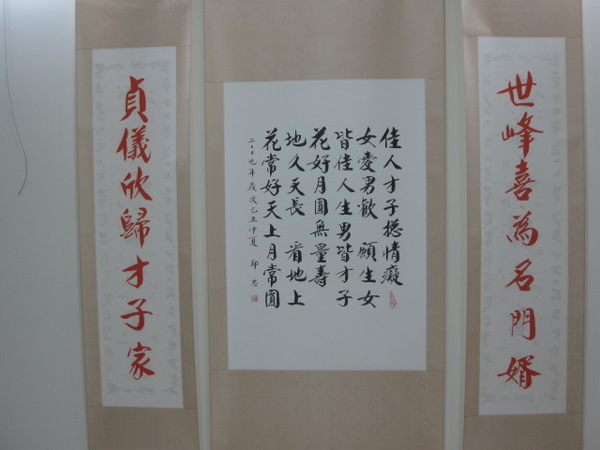 世峰喜為名門婿
佳人才子捴情癡
女愛男歡 願生女
皆佳人生男皆才子
花好月圓無量壽
地久天長 看地上
花常好天上月常圓
二〇〇九年歲次己丑仲夏 鄭
貞儀欣歸才子家